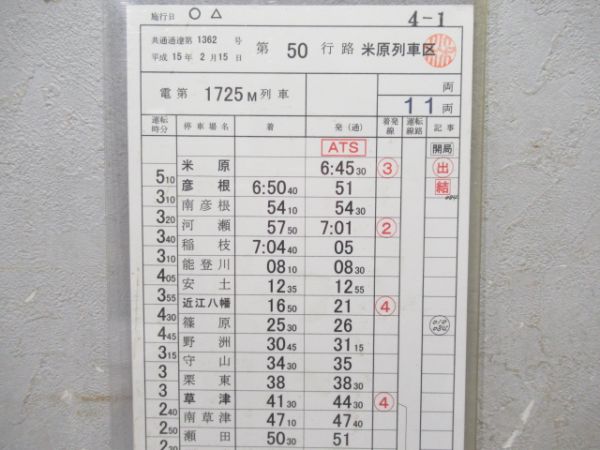 施行日 ○ △ 4-1
共通通達第 1362 号
平成 15 年 2 月 15 日 第 50 行路 米原列車区
電第 1725M 列車 両
11両
運転時分 停車場名 着 発(通) 着発線 運転線路 記事
ATS 開局
米原 6:45 30 ③ 出
5 10
彦根 6:50 40 51 結
3 10
南彦根 54 10 54 30
3 10
河瀬 57 50 7:01 ②
3 40
稲枝 7:04 40 05
3 10
能登川 08 10 08 30
4 05
安土 12 35 12 55
3 55
近江八幡 16 50 21 ④
4 30
篠原 25 30 26
4 45
野洲 30 45 31 15
3 15
守山 34 30 35
3
栗東 38 38 30
3
草津 41 30 44 30 ④
2 40
南草津 47 10 47 40
2 50
瀬田 50 30 51